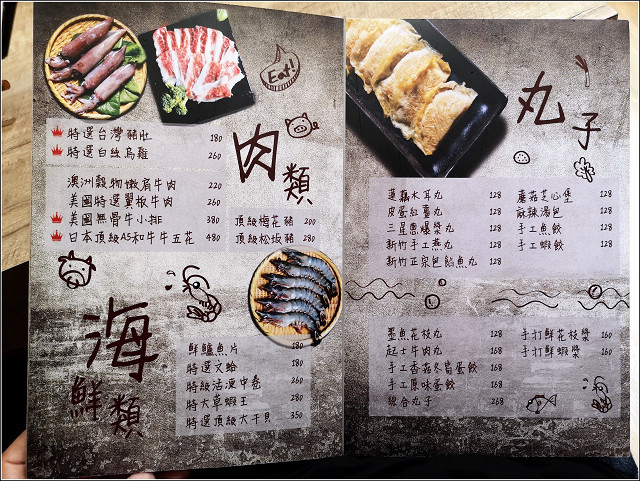 Eat!
肉類
特選台灣豬肚 180
特選白絲烏雞 260
澳洲穀物嫩肩牛肉 220
美國特選翼板牛肉 260
美國無骨牛小排 380
日本頂級A5和牛牛五花 480
頂級梅花豬 200
頂級松板豬 280
海鮮類
鮮鱸魚片 180
特選文蛤 180
特級活凍中卷 260
特大草蝦王 280
特選頂級大干貝 350
丸子
蓮藕木耳丸 128
皮蛋紅薑丸 128
三星蔥爆漿丸 128
新竹手工燕丸 128
新竹正宗包餡魚丸 128
蘑菇芝心堡 128
麻辣湯包 128
手工魚餃 128
手工蝦餃 128
墨魚花枝丸 128
起士牛肉丸 168
手工香菇冬筍蛋餃 168
手工原味蛋餃 168
綜合丸子 268
手打鮮花枝漿 160
手打鮮蝦漿 160